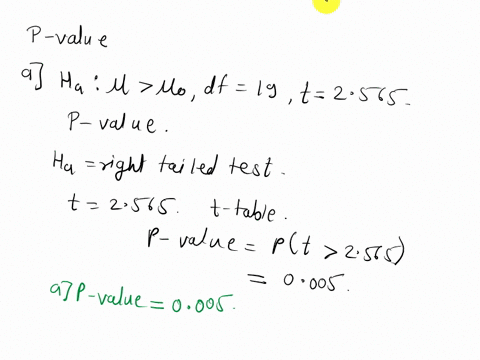 P-value
a] Ha : μ > μo, df = 19, t = 2.565.
P-value.
Ha = right tailed test.
t = 2.565. t-table.
P-value = P(t > 2.565)
= 0.005.
a] P-value = 0.005.